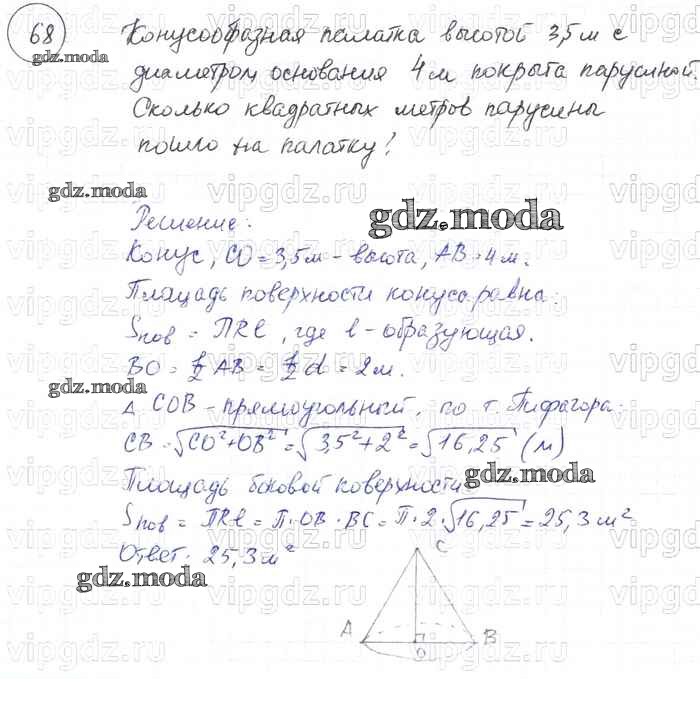 68 Конусообразная палатка высотой 3,5 м с
диаметром основания 4 м покрыта парусиной.
Сколько квадратных метров парусины
пошло на палатку?
gdz.moda
gdz.moda
gdz.moda
Решение:
Конус, CO = 3,5 м – высота, AB = 4 м.
Площадь поверхности конуса равна:
Sпов = ПRℓ, где ℓ – образующая.
BO = 1/2 AB = 1/2 d = 2 м.
gdz.moda
Δ COB – прямоугольный, по т. Пифагора:
CB = √CO²+OB² = √3,5²+2² = √16,25 (м)
Площадь боковой поверхности
gdz.moda
Sпов = ПRℓ = П·OB·BC = П·2·√16,25 = 25,3 м²
Ответ: 25,3 м²
gdz.moda
C
A B
O
vipgdz.ru